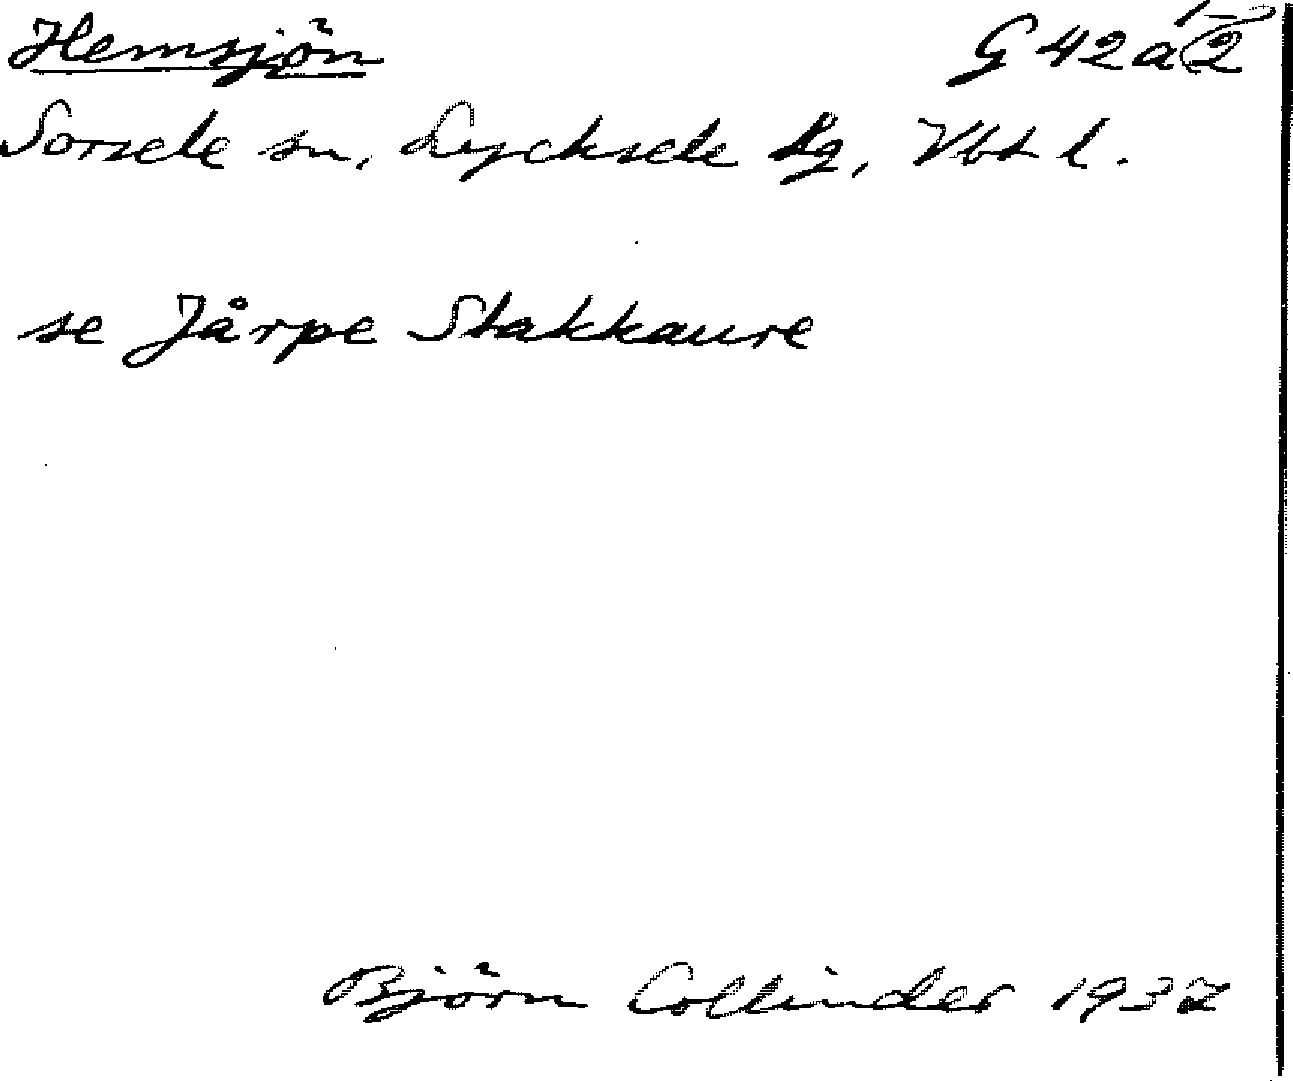 Hemsjön G 42 a
Sorsele sn, Lycksele lg, Vbt l.
se Jårpe Stakkaure
Björn Collinder 1937